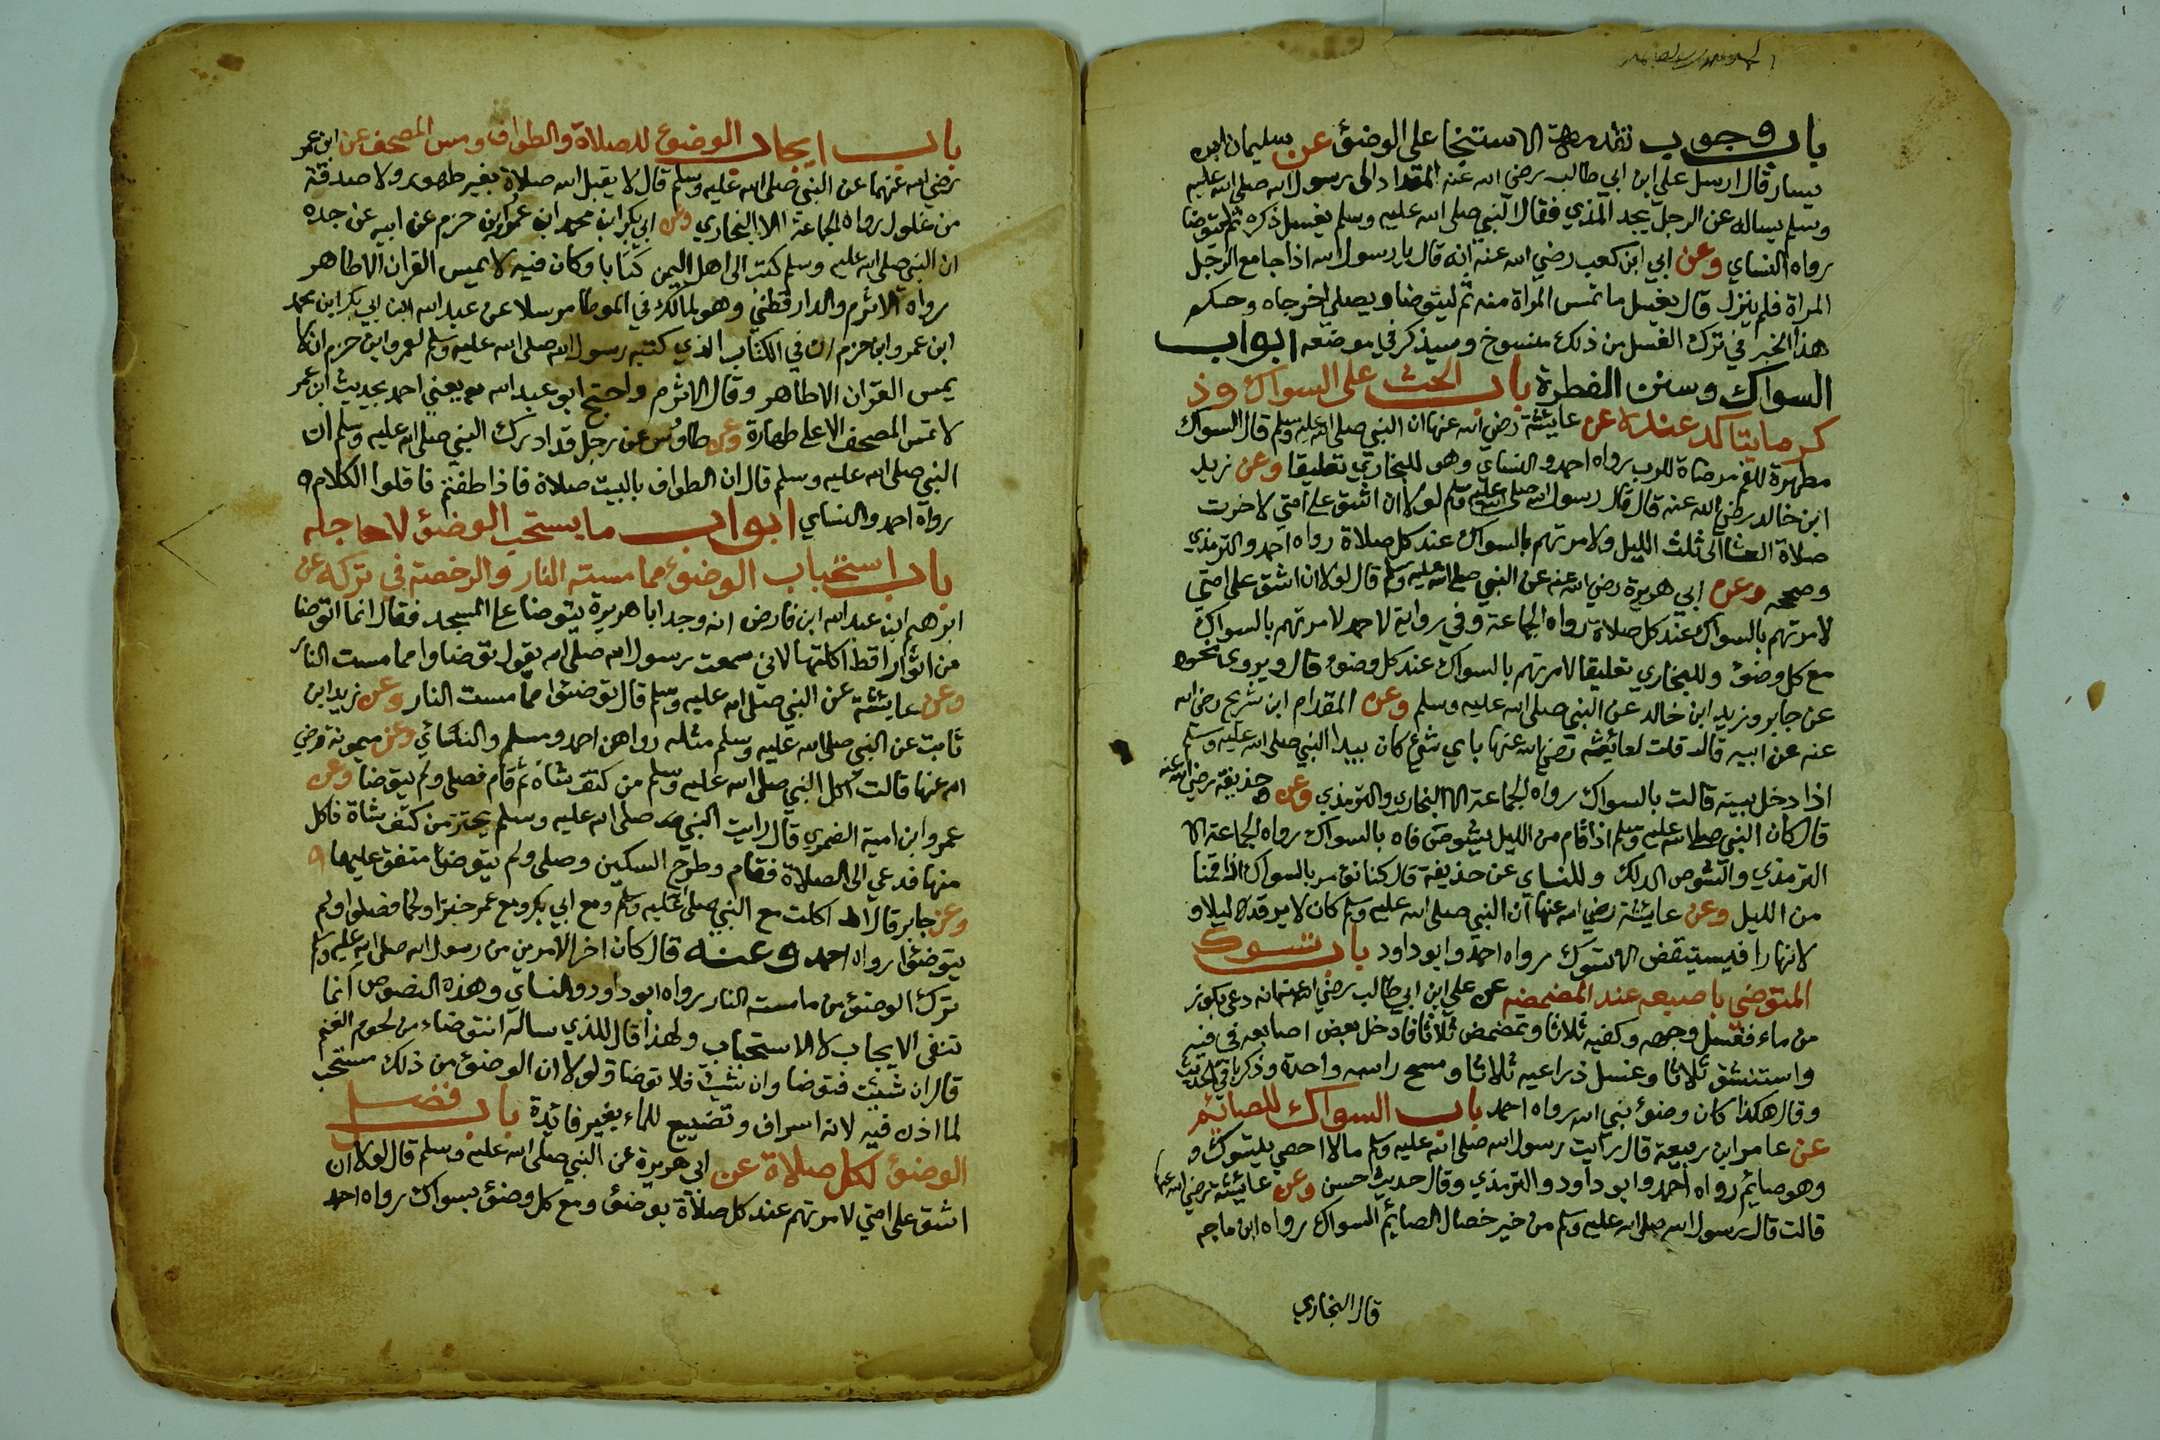 باب وجوب تقدمة الاستنجا على الوضؤ عن سليمان ابن
يسار قال ارسل علي ابن ابي طالب رضي الله عنه المقداد الى رسول الله صلى الله عليه
وسلم يساله عن الرجل يجد المذي فقال النبي صلى الله عليه وسلم يغسل ذكره ثم ليتوضا
رواه النساي وعن ابي ابن كعب رضي الله عنه انه قال يا رسول الله اذا جامع الرجل
المراة فلم ينزل قال يغسل ما مس المراة منه ثم ليتوضا ويصلي اخرجاه وحكم
هذا الخبر في ترك الغسل من ذلك منسوخ وسيذكر في موضعه ابواب
السواك وسنن الفطرة باب الحث على السواك وذ
كر ما يتاكد عنده عن عايشة رضي الله عنها ان النبي صلى الله عليه وسلم قال السواك
مطهرة للفم مرضاة للرب رواه احمد والنساي وهو للبخاري تعليقا وعن زيد
ابن خالد رضي الله عنه قال قال رسول الله صلى الله عليه وسلم لولا ان اشق على امتي لاخرت
صلاة العشا الى ثلث الليل ولامرتهم بالسواك عند كل صلاة رواه احمد والترمذي
وصححه وعن ابي هريرة رضي الله عنه عن النبي صلى الله عليه وسلم قال لولا ان اشق على امتي
لامرتهم بالسواك عند كل صلاة رواه الجماعة وفي رواية لاحمد لامرتهم بالسواك
مع كل وضؤ وللبخاري تعليقا لامرتهم بالسواك عند كل وضوء قال ويروى نحوه
عن جابر وزيد ابن خالد عن النبي صلى الله عليه وسلم وعن المقدام ابن شريح رضي الله
عنه عن ابيه قال قلت لعائشة رضي الله عنها باي شيء كان يبدا النبي صلى الله عليه وسلم
اذا دخل بيته قالت بالسواك رواه الجماعة الا البخاري والترمذي وعن حذيفة رضي الله عنه
قال كان النبي صلى الله عليه وسلم اذا قام من الليل يشوص فاه بالسواك رواه الجماعة الا
الترمذي والشوص الدلك وللنساي عن حذيفة قال كنا نؤمر بالسواك اذا قمنا
من الليل وعن عايشة رضي الله عنها ان النبي صلى الله عليه وسلم كان لا يرقد ليلا و
لا نهارا فيستيقض الا تسوك رواه احمد وابو داود باب تسوك
المتوضي باصبعه عند المضمضه عن علي ابن ابي طالب رضي الله عنه انه دعى بكوز
من ماء فغسل وجهه وكفيه ثلاثا وتمضمض ثلاثا فادخل بعض اصابعه في فيه
واستنشق ثلاثا وغسل ذراعيه ثلاثا ومسح راسه واحدة وذكر باقي الحديث
وقال هكذا كان وضوء نبي الله رواه احمد باب السواك للصايم
عن عامر ابن ربيعة قال رايت رسول الله صلى الله عليه وسلم مالا احصي يتسوك و
وهو صايم رواه احمد وابو داود والترمذي وقال حديث حسن وعن عائشة رضي الله عنها
قالت قال رسول الله صلى الله عليه وسلم من خير خصال الصايم السواك رواه ابن ماجه
قال البخاري
باب ايجاب الوضؤ للصلاة والطواف ومس المصحف عن ابن عمر
رضي الله عنهما عن النبي صلى الله عليه وسلم قال لا يقبل الله صلاة بغير طهور ولا صدقة
من غلول رواه الجماعة الا البخاري وعن ابي بكر ابن محمد ابن عمرو ابن حزم عن ابيه عن جده
ان النبي صلى الله عليه وسلم كتب الى اهل اليمن كتابا وكان فيه لا يمس القران الا طاهر
رواه الاثرم والدارقطني وهو لمالك في الموطا مرسلا عن عبد الله ابن ابي بكر ابن محمد
ابن عمرو ابن حزم ان في الكتاب الذي كتبه رسول الله صلى الله عليه وسلم لعمرو ابن حزم ان لا
يمس القران الا طاهر وقال الاثرم واحتج ابو عبد الله يعني احمد بحديث ابن عمر
لا تمس المصحف الا على طهارة وعن طاوس عن رجل قد ادرك النبي صلى الله عليه وسلم ان
النبي صلى الله عليه وسلم قال ان الطواف بالبيت صلاة فاذا طفتم فاقلوا الكلام
رواه احمد والنساي ابواب ما يستحب الوضؤ لاجله
باب استحباب الوضوء مما مسته النار والرخصة في تركه عن
ابرهيم ابن عبد الله ابن قارض انه وجد ابا هريرة يتوضا على المسجد فقال انما اتوضا
من اثوار اقط اكلتها لاني سمعت رسول الله صلى الله يقول توضاوا مما مست النار
وعن عايشة عن النبي صلى الله عليه وسلم قال توضئوا مما مست النار وعن زيد ابن
ثابت عن النبي صلى الله عليه وسلم مثله رواهن احمد ومسلم والنسائي وعن ميمونة رضي
الله عنها قالت اكل النبي صلى الله عليه وسلم من كتف شاة ثم قام فصلى ولم يتوضا وعن
عمرو ابن امية الضمري قال رايت النبي صلى الله عليه وسلم يحتز من كتف شاة فاكل
منها فدعي الى الصلاة فقام وطرح السكين وصلى ولم يتوضا متفق عليهما
وعن جابر قال اكلت مع النبي صلى الله عليه وسلم ومع ابي بكر ومع عمر خبزا ولحما فصلوا ولم
يتوضؤا رواه احمد وعنه قال كان اخر الامرين من رسول الله صلى الله عليه وسلم
ترك الوضؤ من ما مسته النار رواه ابو داود والنساي وهذه النصوص انما
تنفى الايجاب لا الاستحباب ولهذا قال للذي ساله انتوضاء من لحوم الغنم
قال ان شئت فتوضا وان شئت فلا توضا ولولا ان الوضؤ من ذلك مستحب
لما اذن فيه لانه اسراف وتضييع للماء بغير فائدة باب فضل
الوضؤ لكل صلاة عن ابي هريرة عن النبي صلى الله عليه وسلم قال لولا ان
اشق على امتي لامرتهم عند كل صلاة بوضؤ ومع كل وضؤ بسواك رواه احمد